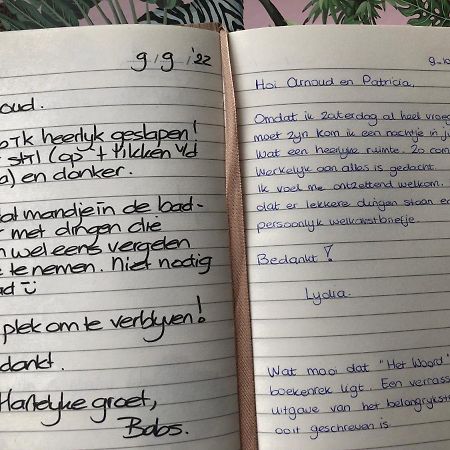 9/9 '22
oud.
Ik heerlijk geslapen!
stil (op 't tikken v/d
a) en donker.
mandje in de bad-
met dingen die
wel eens vergeten
te nemen. Niet nodig
ad ü
plek om te verblijven!
dankt.
Hartelijke groet,
Babs.
9-10
Hoi Arnoud en Patricia,
Omdat ik zaterdag al heel vroeg
moet zijn kom ik een nachtje in ju
Wat een heerlijke ruimte. Zo com
Werkelijk aan alles is gedacht.
Ik voel me ontzettend welkom.
dat er lekkere dingen staan e
persoonlijk welkomstbriefje.
Bedankt!
Lydia.
Wat mooi dat "Het Woord"
boekenrek ligt. Een verrass
uitgave van het belangrijkst
ooit geschreven is.